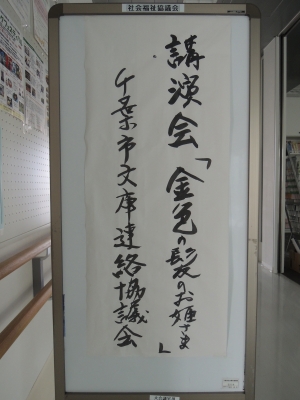 社会福祉協議会
講演会「金色の髪のお姫さま」
千葉市文庫連絡協議会